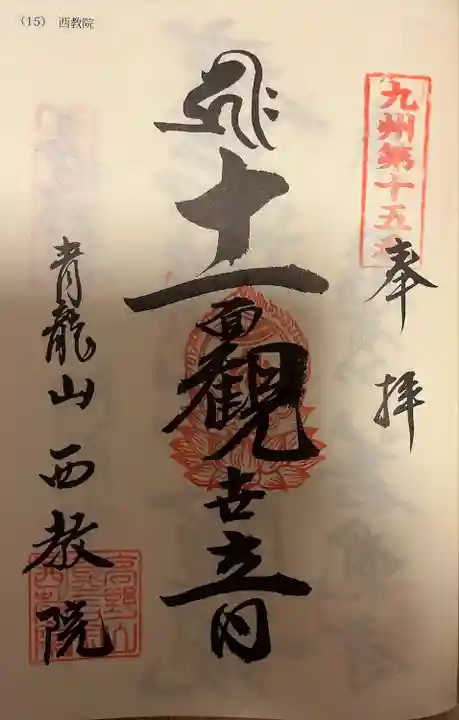 (15) 西教院
九州第十五番
奉拝
十一面観世音
青龍山 西教院